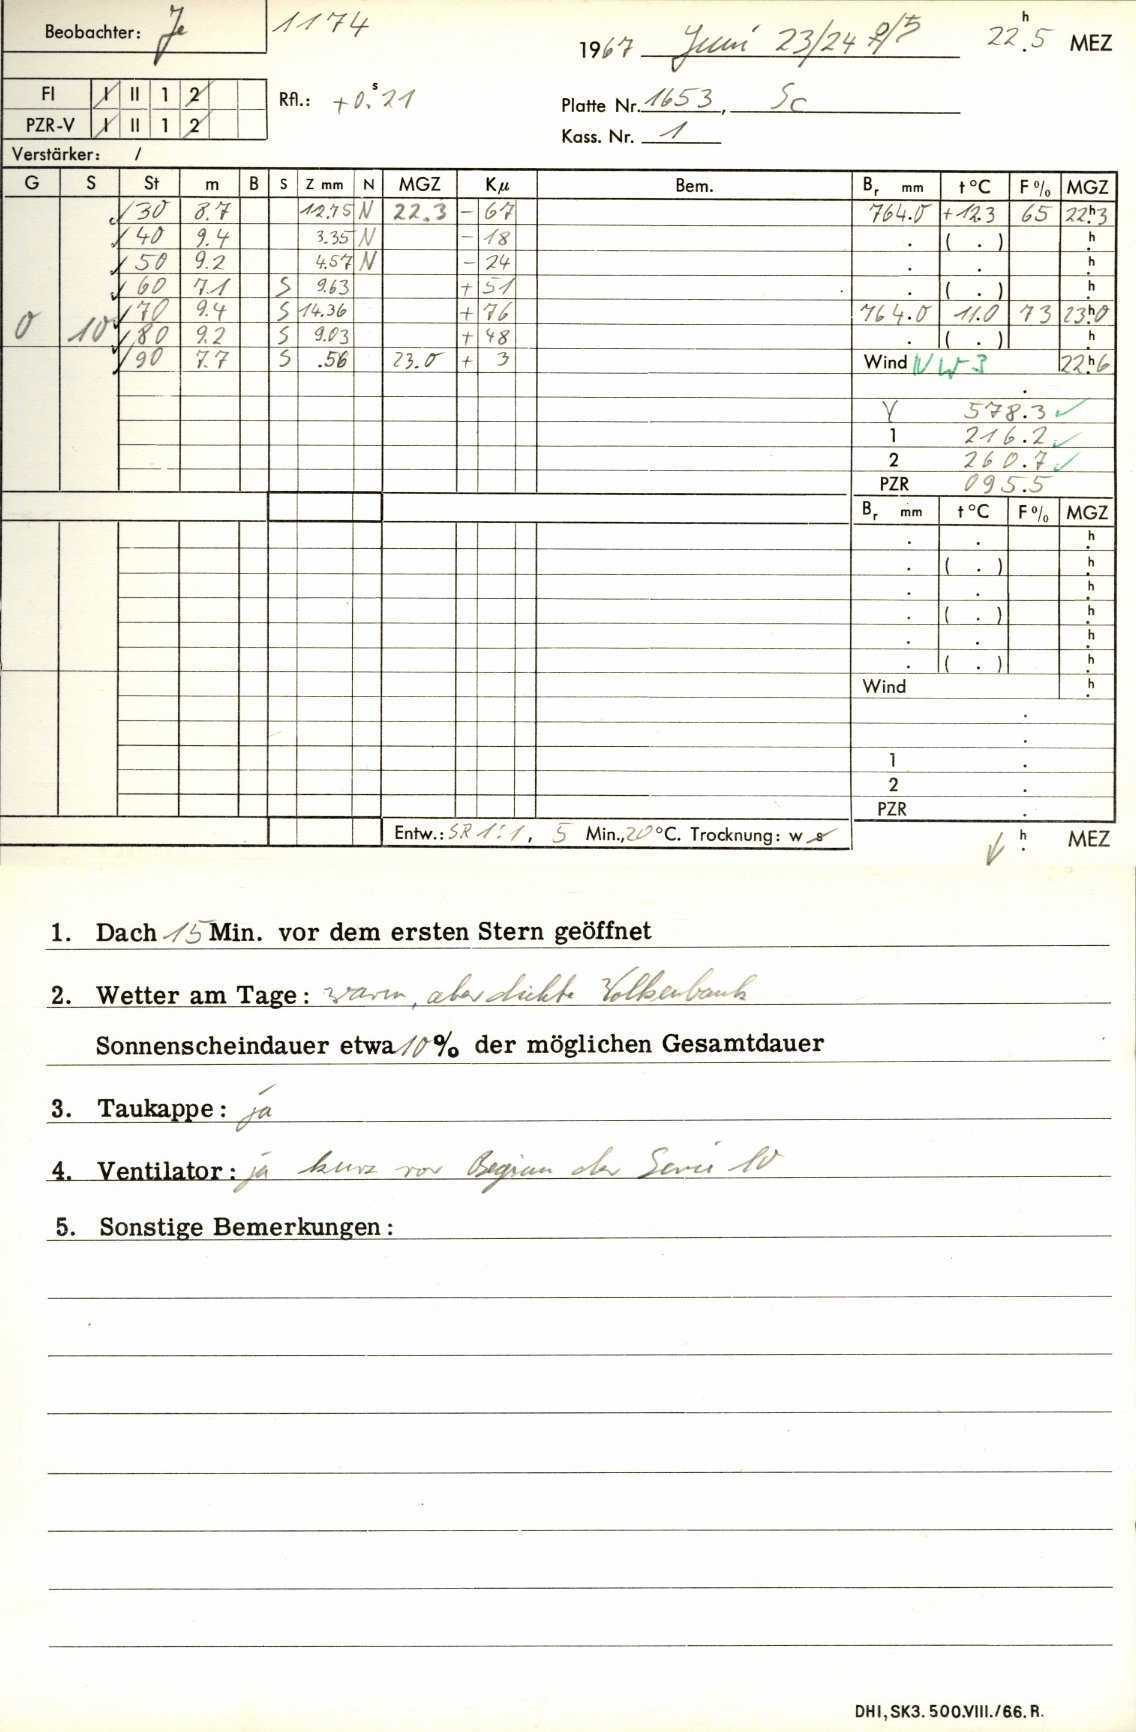 Beobachter: Je 1174
1967 Juni 23/24 22.h5 MEZ
FI I II 1 2 Rfl.: +0.s21
Platte Nr. 1653, Sc
PZR-V I II 1 2
Kass. Nr. 1
Verstärker: /
G S St m B S Z mm N MGZ Kμ Bem. Br mm t °C F % MGZ
30 8.7 12.75 N 22.3 - 67 764.0 +12.3 65 22.h3
40 9.4 3.35 N - 18 . ( . ) h.
50 9.2 4.57 N - 24 . . h.
60 7.1 S 9.63 + 51 . ( . ) h.
0 10 70 9.4 S 14.36 + 76 764.0 11.0 73 23.h0
80 9.2 S 9.03 + 48 . ( . ) h.
90 7.7 S .56 23.0 + 3 Wind NW3 22.h6
.
V 578.3 ✓
1 216.2 ✓
2 260.7 ✓
PZR 095.5
Br mm t °C F % MGZ
. . h.
. ( . ) h.
. . h.
. ( . ) h.
. . h.
. ( . ) h.
Wind h.
.
.
1 .
2 .
PZR .
Entw.: SR 1:1, 5 Min., 20 °C. Trocknung: w s
h. MEZ
1. Dach 15 Min. vor dem ersten Stern geöffnet
2. Wetter am Tage: warm, aber dichte Wolkenbank
Sonnenscheindauer etwa 10 % der möglichen Gesamtdauer
3. Taukappe: ja
4. Ventilator: ja kurz vor Beginn der Serie 10
5. Sonstige Bemerkungen:
DHI, SK3. 500.VIII./66. R.